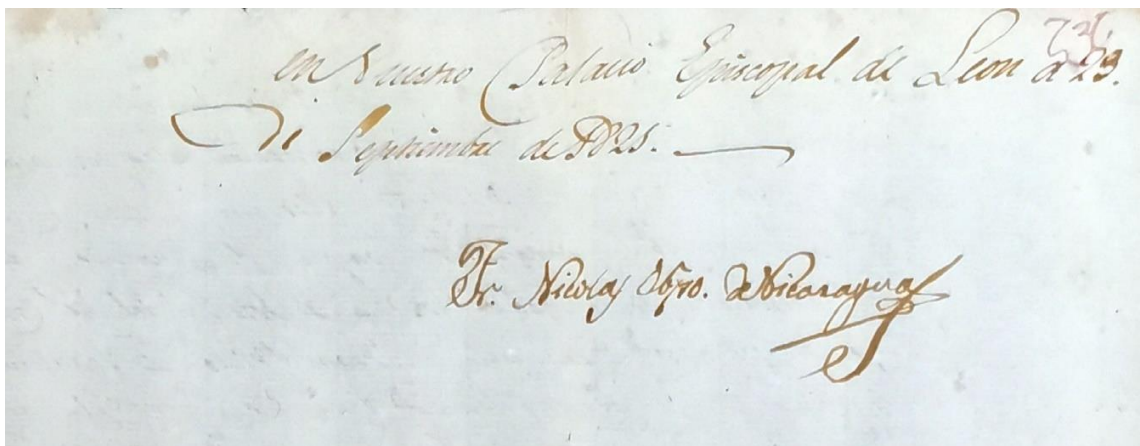 en Nuestro Palacio Episcopal de Leon a 23.
de Septiembre de 1825.
Fr. Nicolas Obpo. de Nicaragua